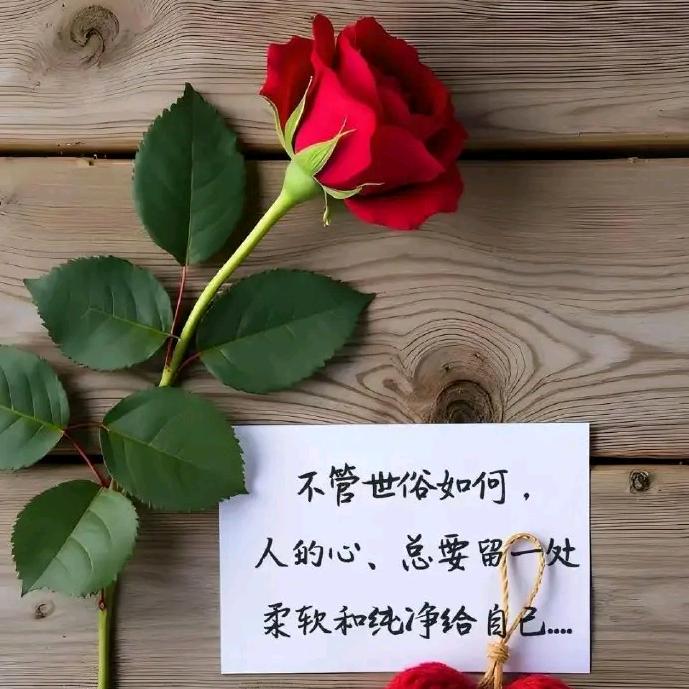 不管世俗如何，
人的心、总要留一处
柔软和纯净给自己....